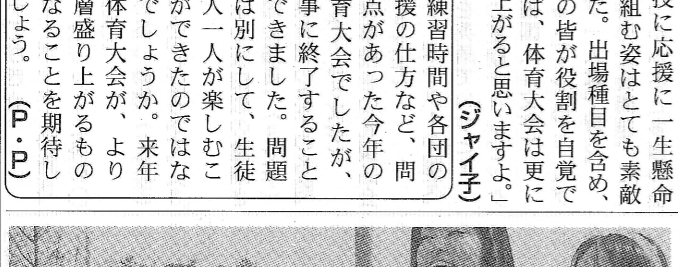 技に応援に一生懸命
組む姿はとても素敵
た。出場種目を含め、
の皆が役割を自覚で
は、体育大会は更に
上がると思いますよ。」
(ジャイ子)
練習時間や各団の
援の仕方など、問
点があった今年の
育大会でしたが、
事に終了すること
できました。問題
は別にして、生徒
人一人が楽しむこ
ができたのではな
でしょうか。来年
体育大会が、より
層盛り上がるもの
なることを期待し
しょう。
(P・P)